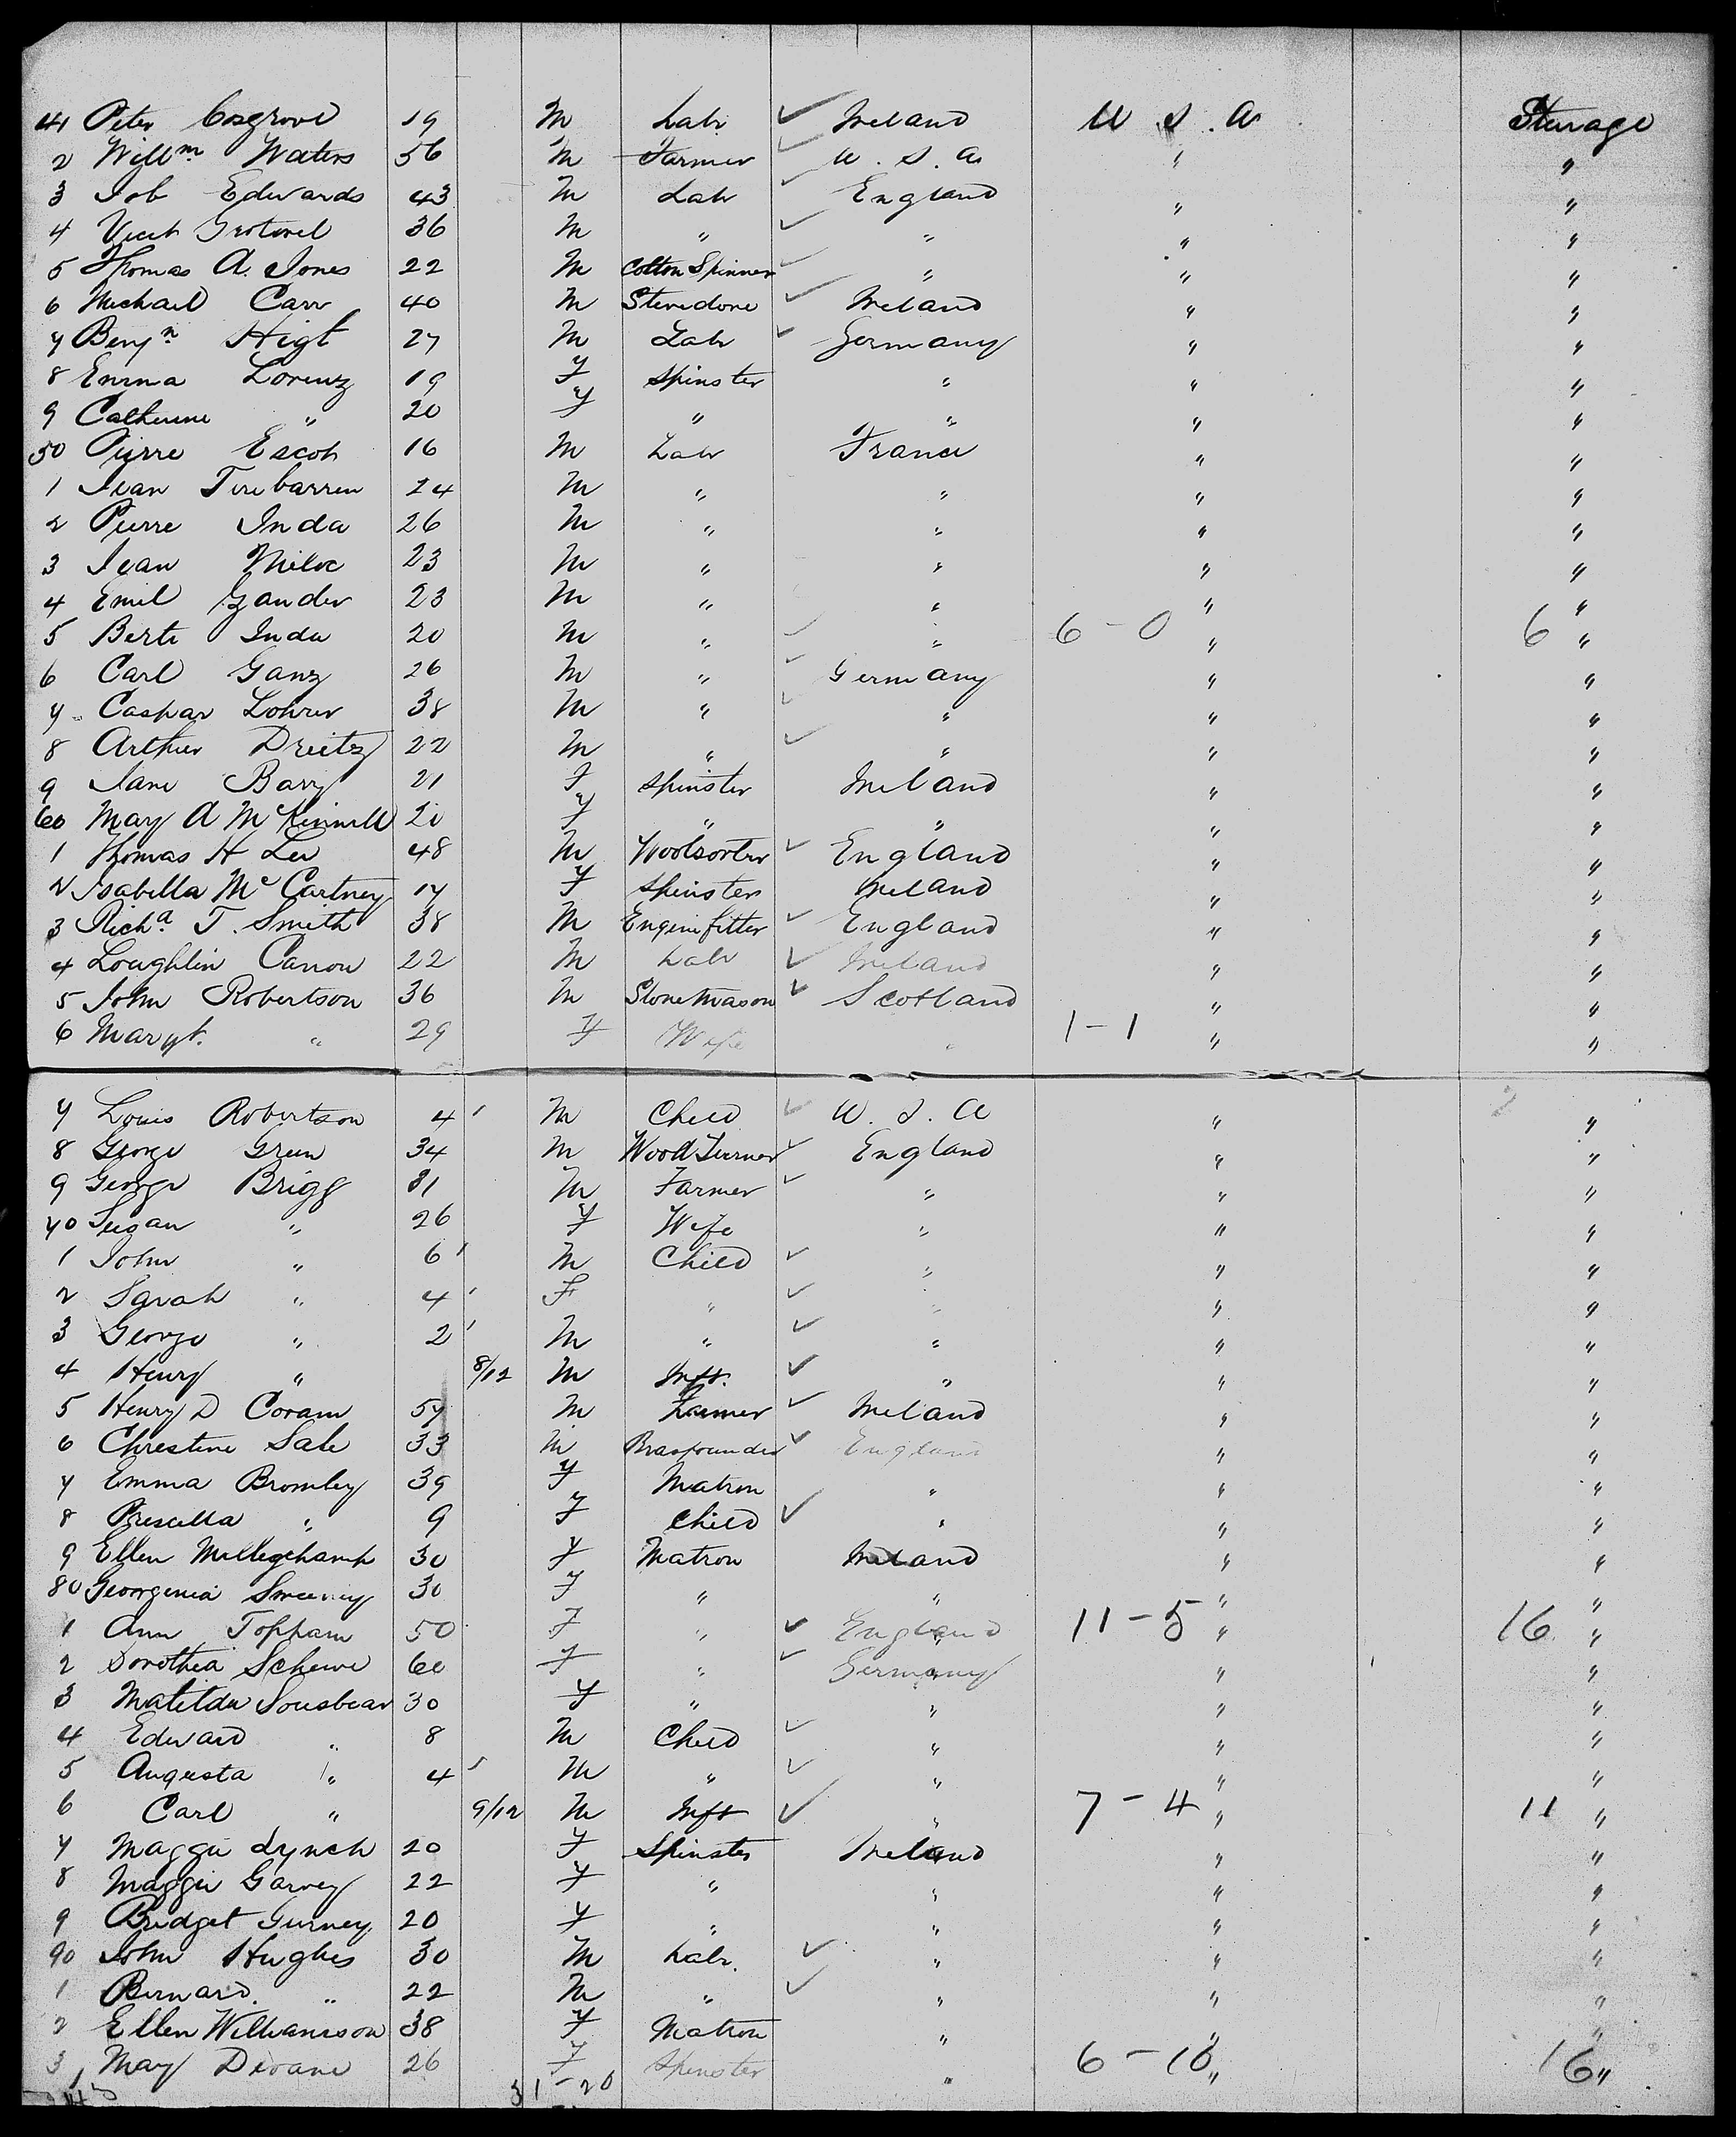 41 Peter Cosgrove 19 M Labr ✓ Ireland U.S.A. Steerage
2 Willm Waters 56 M Farmer ✓ U.S.A. " "
3 Job Edwards 43 M Labr ✓ England " "
4 36 M " ✓ " " "
5 Thomas A. Jones 22 M Cotton Spinner ✓ " " "
6 Michael Carr 40 M Stevedore ✓ Ireland " "
7 Benjn Higt 27 M Labr ✓ Germany " "
8 Emma Lorenz 19 F Spinster " " "
9 Catherine " 20 F " " " "
50 Pierre Escot 16 M Labr France " "
1 Jean 24 M " " " "
2 Pierre Inda 26 M " " " "
3 Jean 23 M " " " "
4 Emil Gander 23 M " " " "
5 Berte Inda 20 M " ✓ " 6-0 " 6 "
6 Carl Ganz 26 M " ✓ Germany " "
7 Caspar Lohrer 38 M " ✓ " " "
8 Arthur Drietz 22 M " ✓ " " "
9 Jane Barry 21 F Spinster Ireland " "
60 Mary A 20 F " " " "
1 Thomas H Lee 48 M Woolsorter ✓ England " "
2 Isabella McCartney 17 F Spinster Ireland " "
3 Richd T. Smith 38 M Engine fitter ✓ England " "
4 Loughlin Canon 22 M Labr ✓ Ireland " "
5 John Robertson 36 M Stonemason ✓ Scotland " "
6 Margt. " 29 F Wife " 1-1 " "
7 Louis Robertson 4 M Child ✓ U.S.A " 2 "
8 George Green 34 M Wood Turner ✓ England " "
9 George Brigg 31 M Farmer ✓ " " "
70 Susan " 26 F Wife " " "
1 John " 6 M Child ✓ " " "
2 Sarah " 4 F " ✓ " " "
3 George " 2 M " ✓ " " "
4 Henry " 8/12 M Inft. ✓ " " "
5 Henry D Coram 57 M Farmer ✓ Ireland " "
6 Christine Sale 33 M Brassfounder ✓ England " "
7 Emma Bromley 39 F Matron " " "
8 Priscilla " 9 F Child ✓ " " "
9 Ellen Millegchamp 30 F Matron Ireland " "
80 Georgenia Sweeney 30 F " " " "
1 Ann Topham 50 F " ✓ England 11-5 " 16 "
2 Dorothea Schewe 60 F " ✓ Germany " "
3 Matilda Sousbear 30 F " " " "
4 Edward " 8 M Child ✓ " " "
5 Augusta " 4 M " ✓ " " "
6 Carl " 9/12 M Inft ✓ " 7-4 " 11 "
7 Maggie Lynch 20 F Spinster Ireland " "
8 Maggie Garvey 22 F " " " "
9 Bridget Gurney 20 F " " " "
90 John Hughes 30 M Labr. ✓ " " "
1 Bernard. " 22 M " ✓ " " "
2 Ellen Williamson 38 F Matron " " "
3 Mary Devane 26 F Spinster " 6-10 " 16 "
31-20